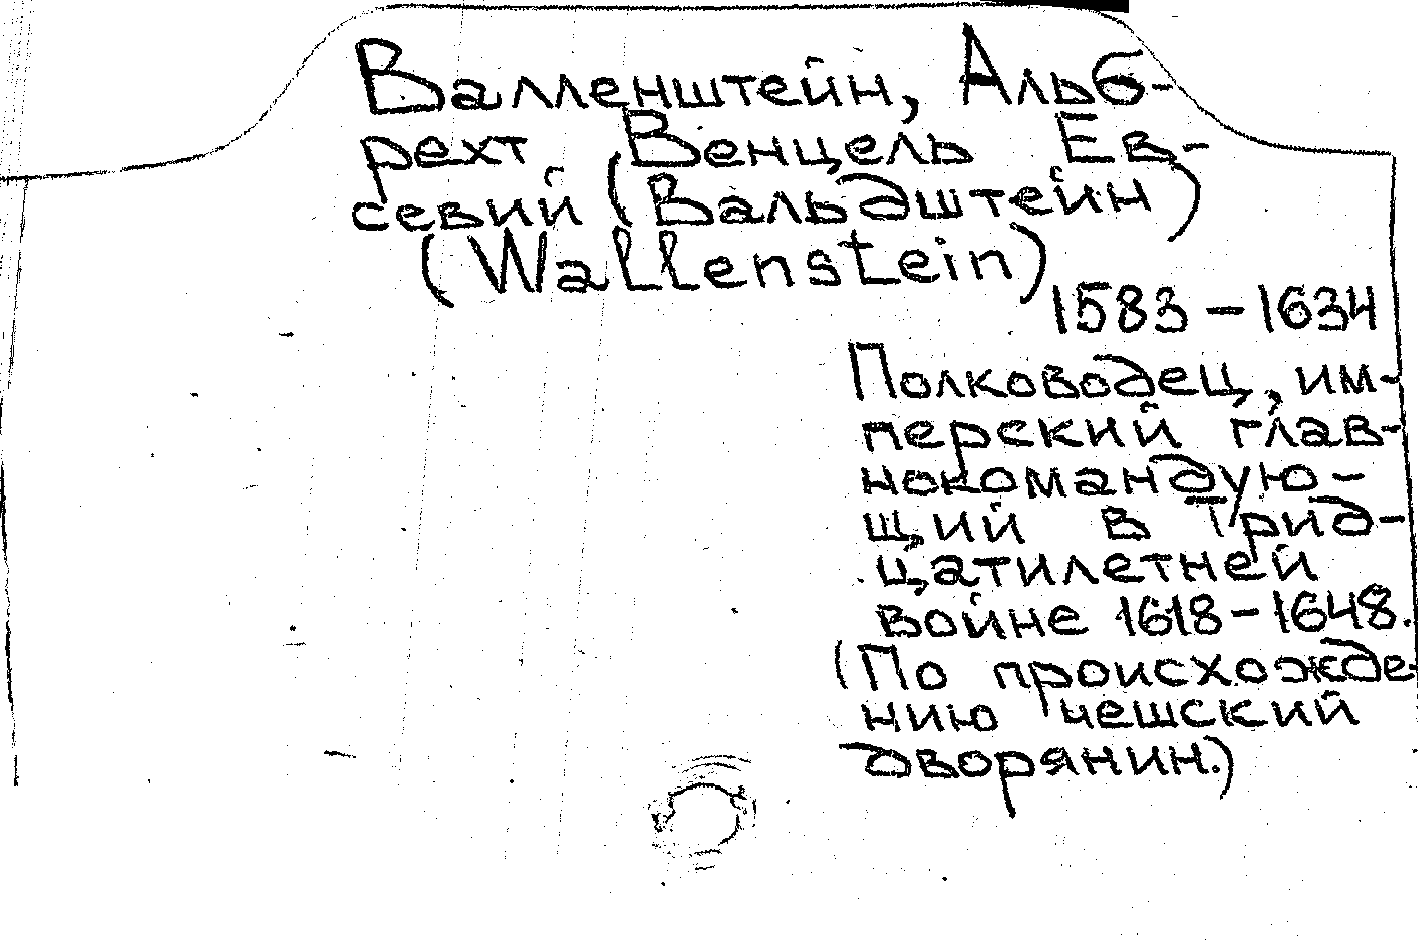 Валленштейн, Альб-
рехт Венцель Ев-
севий (Вальдштейн)
(Wallenstein)
1583 – 1634
Полководец, им-
перский глав-
нокомандую-
щий в Трид-
цатилетней
войне 1618 – 1648.
(По происхожде-
нию чешский
дворянин.)